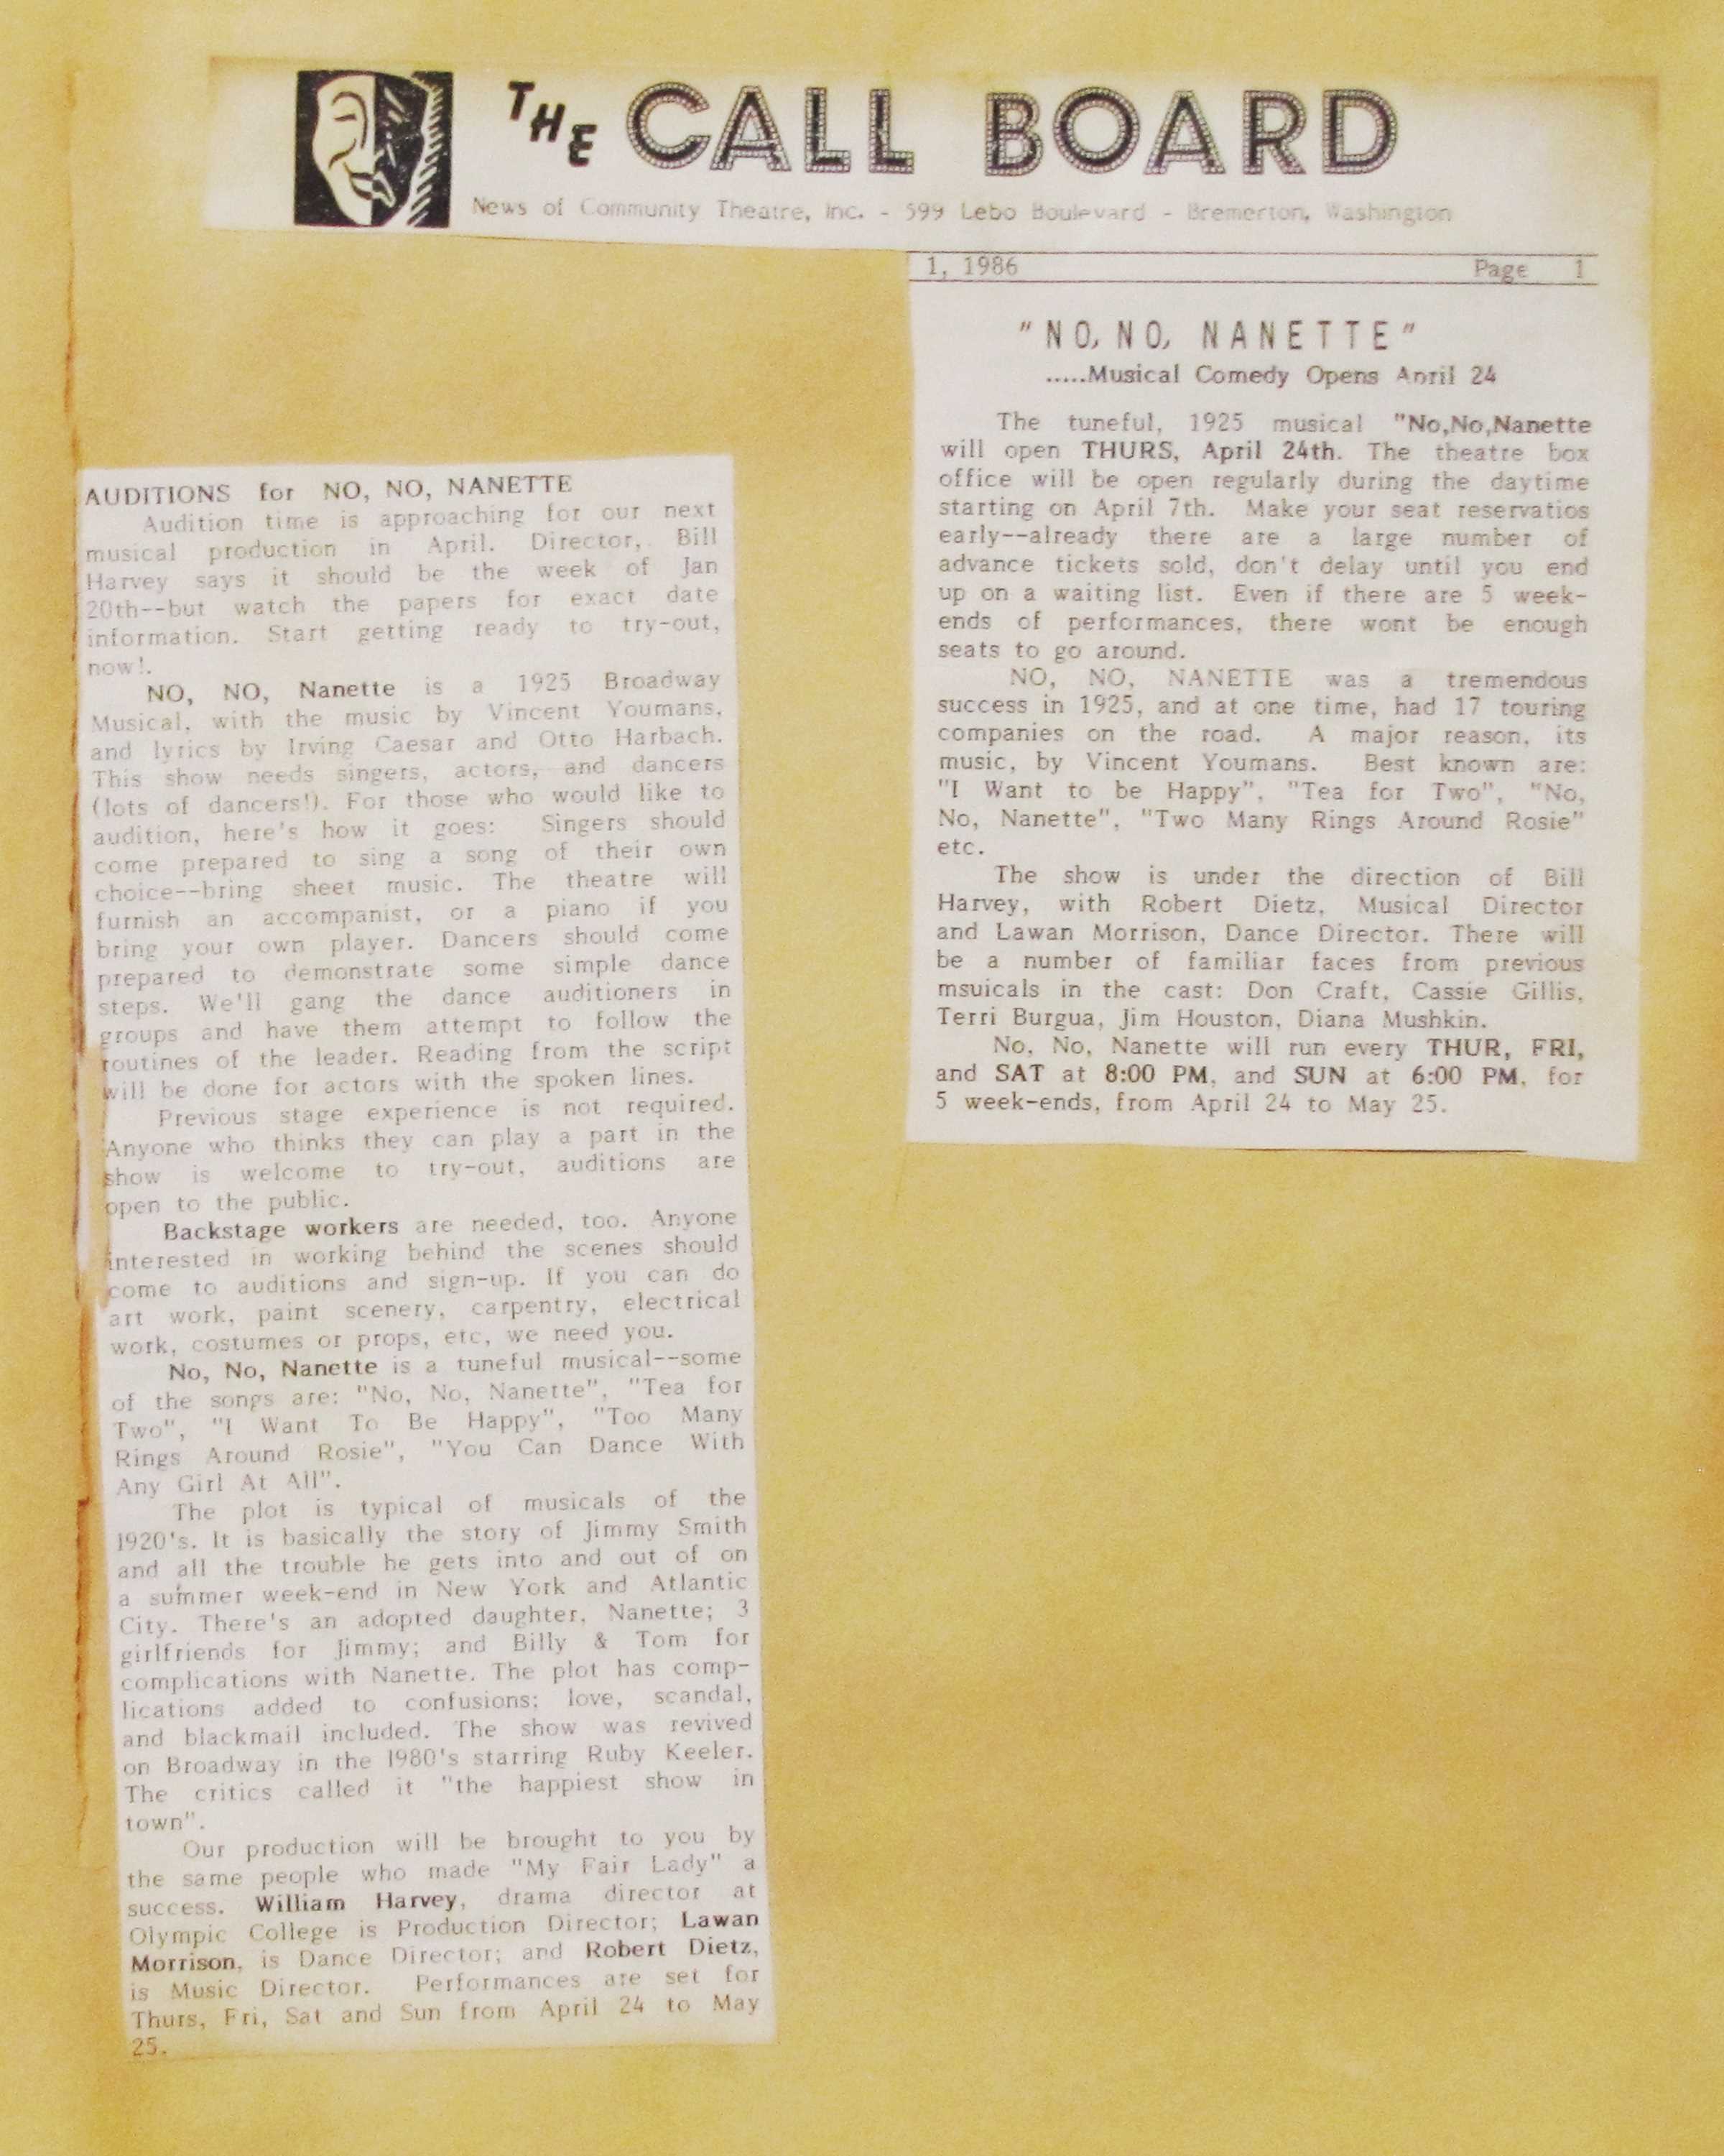 THE CALL BOARD
News of Community Theatre, Inc. - 599 Lebo Boulevard - Bremerton, Washington
AUDITIONS for NO, NO, NANETTE
Audition time is approaching for our next
musical production in April. Director, Bill
Harvey says it should be the week of Jan
20th--but watch the papers for exact date
information. Start getting ready to try-out,
now!.
NO, NO, Nanette is a 1925 Broadway
Musical, with the music by Vincent Youmans,
and lyrics by Irving Caesar and Otto Harbach.
This show needs singers, actors, and dancers
(lots of dancers!). For those who would like to
audition, here's how it goes: Singers should
come prepared to sing a song of their own
choice--bring sheet music. The theatre will
furnish an accompanist, or a piano if you
bring your own player. Dancers should come
prepared to demonstrate some simple dance
steps. We'll gang the dance auditioners in
groups and have them attempt to follow the
routines of the leader. Reading from the script
will be done for actors with the spoken lines.
Previous stage experience is not required.
Anyone who thinks they can play a part in the
show is welcome to try-out, auditions are
open to the public.
Backstage workers are needed, too. Anyone
interested in working behind the scenes should
come to auditions and sign-up. If you can do
art work, paint scenery, carpentry, electrical
work, costumes or props, etc, we need you.
No, No, Nanette is a tuneful musical--some
of the songs are: "No, No, Nanette", "Tea for
Two", "I Want To Be Happy", "Too Many
Rings Around Rosie", "You Can Dance With
Any Girl At All".
The plot is typical of musicals of the
1920's. It is basically the story of Jimmy Smith
and all the trouble he gets into and out of on
a summer week-end in New York and Atlantic
City. There's an adopted daughter, Nanette; 3
girlfriends for Jimmy; and Billy & Tom for
complications with Nanette. The plot has comp-
lications added to confusions; love, scandal,
and blackmail included. The show was revived
on Broadway in the 1980's starring Ruby Keeler.
The critics called it "the happiest show in
town".
Our production will be brought to you by
the same people who made "My Fair Lady" a
success. William Harvey, drama director at
Olympic College is Production Director; Lawan
Morrison, is Dance Director; and Robert Dietz,
is Music Director. Performances are set for
Thurs, Fri, Sat and Sun from April 24 to May
25.
1, 1986 Page 1
"NO, NO, NANETTE"
.....Musical Comedy Opens April 24
The tuneful, 1925 musical "No,No,Nanette
will open THURS, April 24th. The theatre box
office will be open regularly during the daytime
starting on April 7th. Make your seat reservatios
early--already there are a large number of
advance tickets sold, don't delay until you end
up on a waiting list. Even if there are 5 week-
ends of performances, there wont be enough
seats to go around.
NO, NO, NANETTE was a tremendous
success in 1925, and at one time, had 17 touring
companies on the road. A major reason, its
music, by Vincent Youmans. Best known are:
"I Want to be Happy", "Tea for Two", "No,
No, Nanette", "Two Many Rings Around Rosie"
etc.
The show is under the direction of Bill
Harvey, with Robert Dietz, Musical Director
and Lawan Morrison, Dance Director. There will
be a number of familiar faces from previous
msuicals in the cast: Don Craft, Cassie Gillis,
Terri Burgua, Jim Houston, Diana Mushkin.
No, No, Nanette will run every THUR, FRI,
and SAT at 8:00 PM, and SUN at 6:00 PM, for
5 week-ends, from April 24 to May 25.